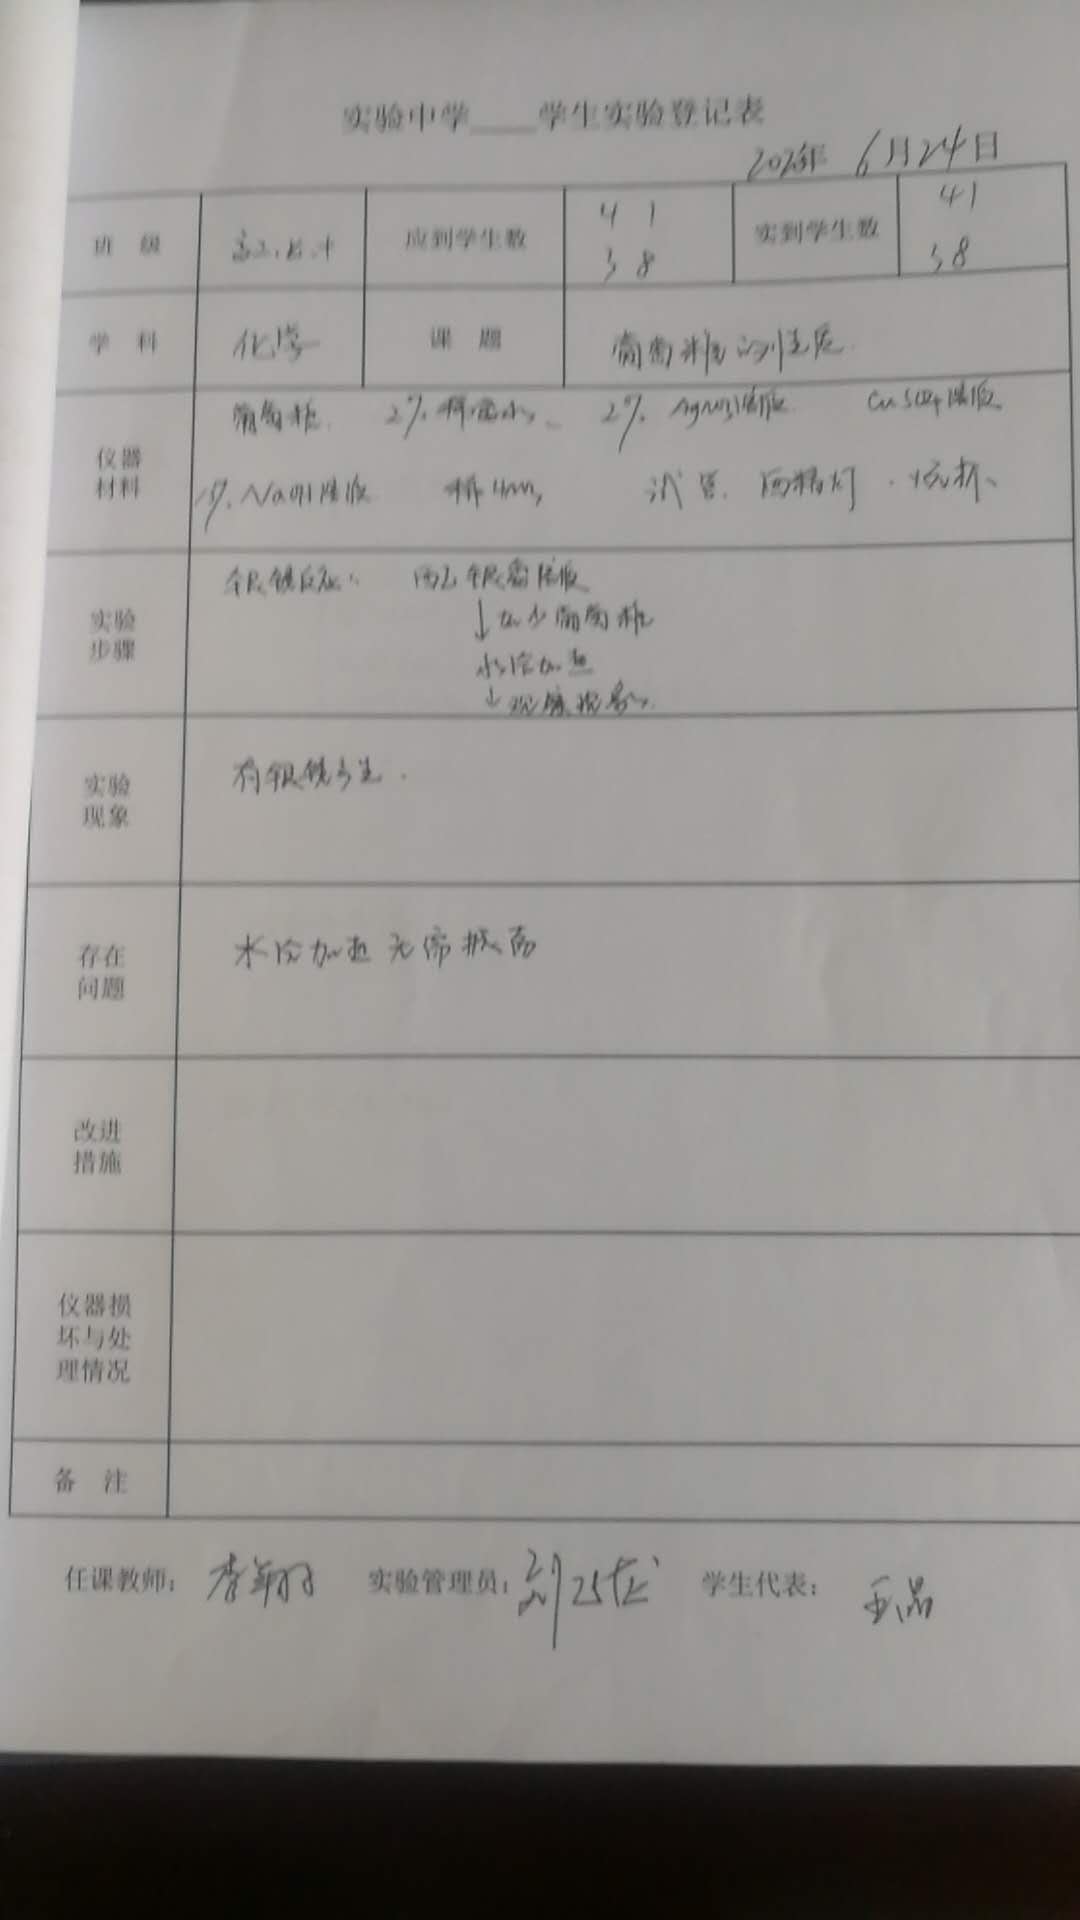 实验中学____学生实验登记表
年 6月24日
班 级 应到学生数 41 38 实到学生数 41 38
学 科 化学 课 题 葡萄糖的性质
仪器材料 葡萄糖 2%稀氨水、 2%. AgNO3溶液 CuSO4溶液
NaOH溶液 试管. 酒精灯 . 烧杯、
实验步骤 银镜反应: 银氨溶液
↓加少葡萄糖
水浴加热
↓观察现象
实验现象 有银镜产生.
存在问题 水浴加热 无需振荡
改进措施
仪器损坏与处理情况
备 注
任课教师: 实验管理员: 刘 学生代表: